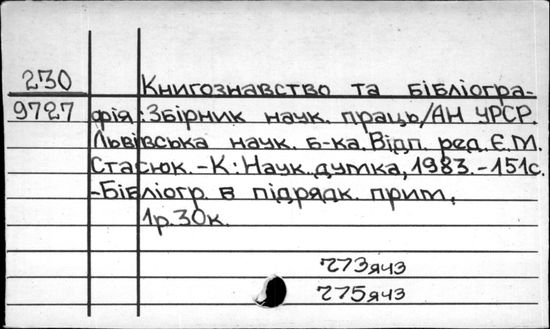 230
9727
Книгознавство та бібліогра-
фія:Збірник наук. праць/АН УРСР.
Львівська наук. б-ка.Відп. ред.Є.М.
Стасюк.-К:Наук.думка,1983.-151с.
-Бібліогр. в підрядк. прим.
1р.30к.
273яч3
275яч3